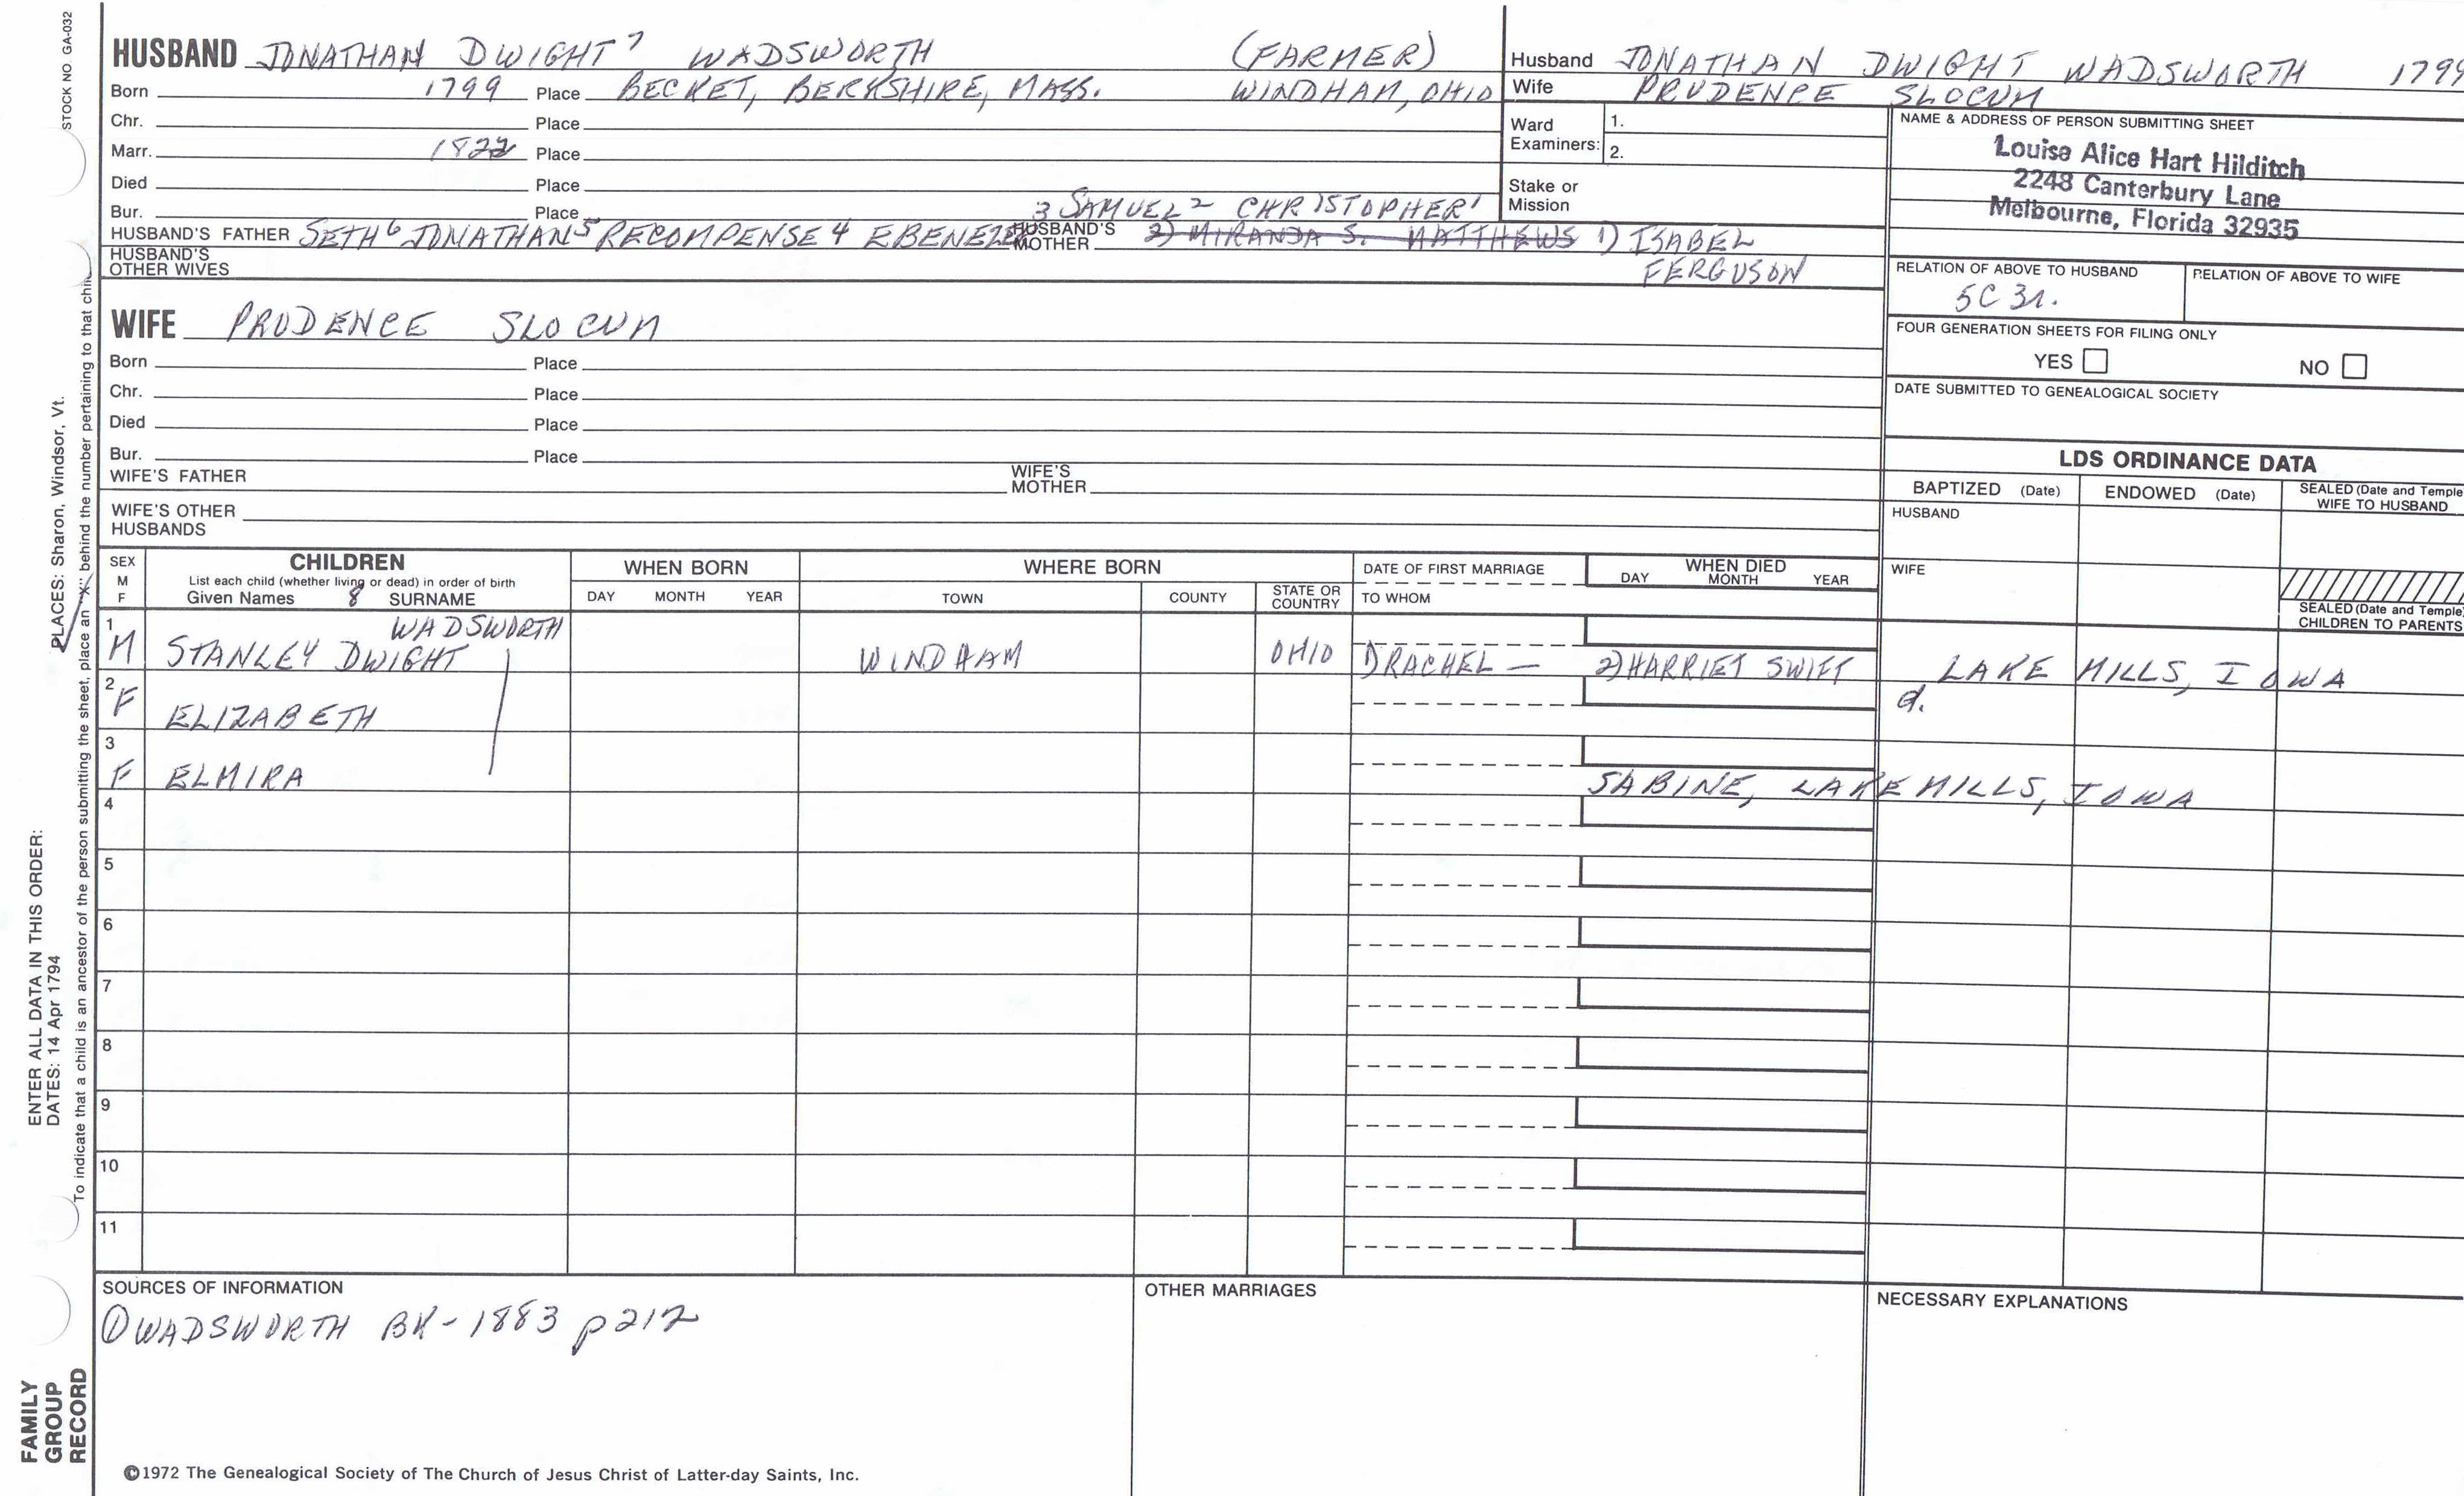 STOCK NO. GA-032
HUSBAND JONATHAN DWIGHT 7 WADSWORTH (FARMER)
Born 1799 Place BECKET, BERKSHIRE, MASS. WINDHAM, OHIO
Chr. Place
Marr. 1822 Place
Died Place
Bur. Place 3 SAMUEL 2 CHRISTOPHER 1
HUSBAND'S FATHER SETH 6 JONATHAN 5 RECOMPENSE 4 EBENEZER HUSBAND'S MOTHER 2) MIRANDA S. MATTHEWS 1) ISABEL
FERGUSON
HUSBAND'S OTHER WIVES
Husband JONATHAN DWIGHT WADSWORTH 1799
Wife PRUDENCE SLOCUM
Ward Examiners: 1.
2.
Stake or Mission
NAME & ADDRESS OF PERSON SUBMITTING SHEET
Louise Alice Hart Hilditch
2248 Canterbury Lane
Melbourne, Florida 32935
RELATION OF ABOVE TO HUSBAND RELATION OF ABOVE TO WIFE
5C 3r.
FOUR GENERATION SHEETS FOR FILING ONLY
YES NO
DATE SUBMITTED TO GENEALOGICAL SOCIETY
WIFE PRUDENCE SLOCUM
Born Place
Chr. Place
Died Place
Bur. Place
WIFE'S FATHER WIFE'S MOTHER
WIFE'S OTHER HUSBANDS
LDS ORDINANCE DATA
BAPTIZED (Date) ENDOWED (Date) SEALED (Date and Temple) WIFE TO HUSBAND
HUSBAND
WIFE
SEALED (Date and Temple) CHILDREN TO PARENTS
SEX M F
CHILDREN
List each child (whether living or dead) in order of birth
Given Names 8 SURNAME
WHEN BORN
DAY MONTH YEAR
WHERE BORN
TOWN COUNTY STATE OR COUNTRY
DATE OF FIRST MARRIAGE
TO WHOM
WHEN DIED
DAY MONTH YEAR
WADSWORTH
1 M STANLEY DWIGHT WINDHAM OHIO 1) RACHEL — 2) HARRIET SWIFT LAKE MILLS, IOWA
2 F ELIZABETH d.
3 F ELMIRA SABINE, LAKE MILLS, IOWA
4
5
6
7
8
9
10
11
SOURCES OF INFORMATION
① WADSWORTH BK - 1883 p 212
OTHER MARRIAGES
NECESSARY EXPLANATIONS
©1972 The Genealogical Society of The Church of Jesus Christ of Latter-day Saints, Inc.
FAMILY
GROUP
RECORD
ENTER ALL DATA IN THIS ORDER:
DATES: 14 Apr 1794
PLACES: Sharon, Windsor, Vt.
To indicate that a child is an ancestor of the person submitting the sheet, place an "X" behind the number pertaining to that child.